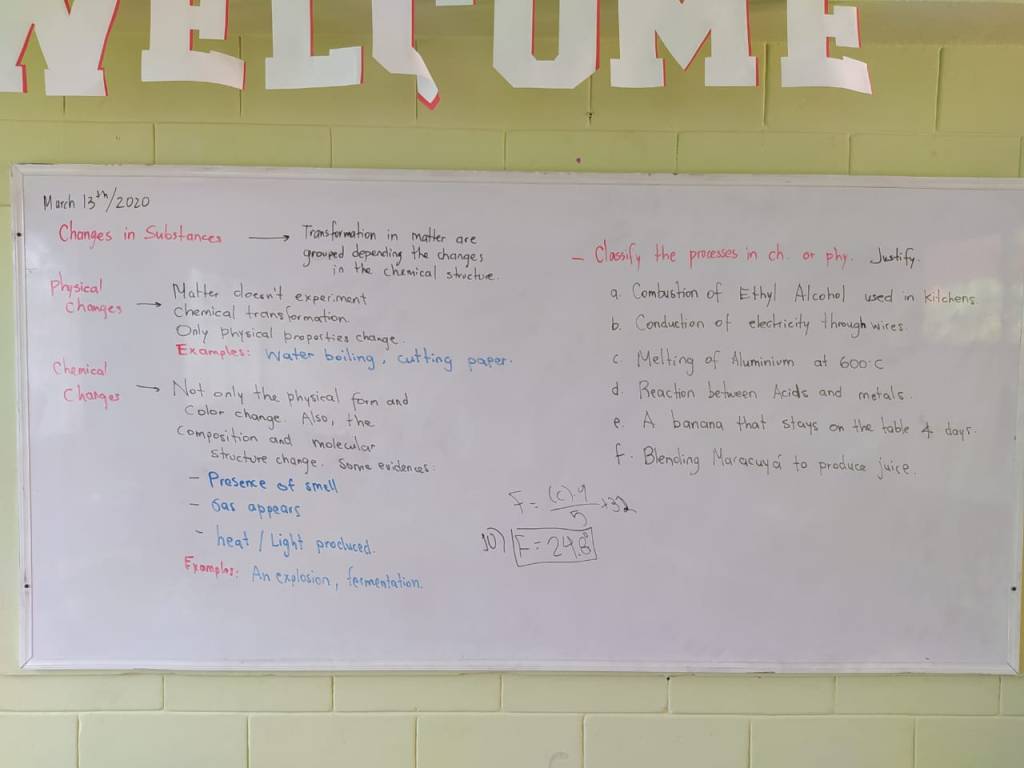 WELCOME
March 13th/2020
Changes in Substances → Transformation in matter are
grouped depending the changes
in the chemical structure.
Physical
Changes → Matter doesn't experiment
chemical transformation.
Only physical properties change.
Examples: Water boiling, cutting paper.
Chemical
Changes → Not only the physical form and
Color change. Also, the
Composition and molecular
structure change. Some evidences:
- Presence of smell
- Gas appears
- heat / Light produced.
Examples: An explosion, fermentation.
- Classify the processes in ch. or phy. Justify.
a. Combustion of Ethyl Alcohol used in kitchens.
b. Conduction of electricity through wires.
c. Melting of Aluminium at 600°C
d. Reaction between Acids and metals.
e. A banana that stays on the table 4 days.
f. Blending Maracuyá to produce juice.
F = (C)·9/5 + 32
10) F = 24.8